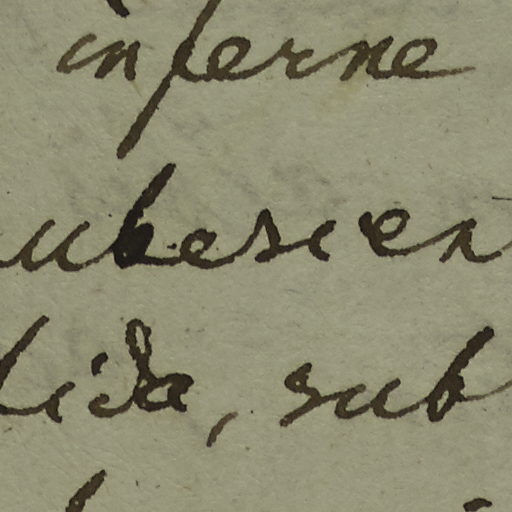 inferne
ubescen
lida, sub